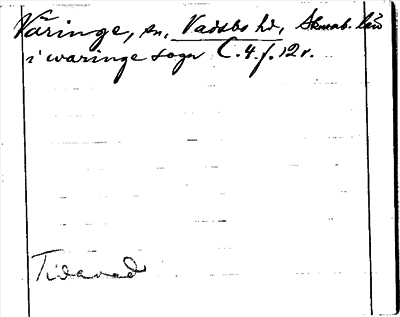 Väringe, sn, Vadsbo hd, Skarab. län
i waringe sogn C.4.f.12v.
Tidavad